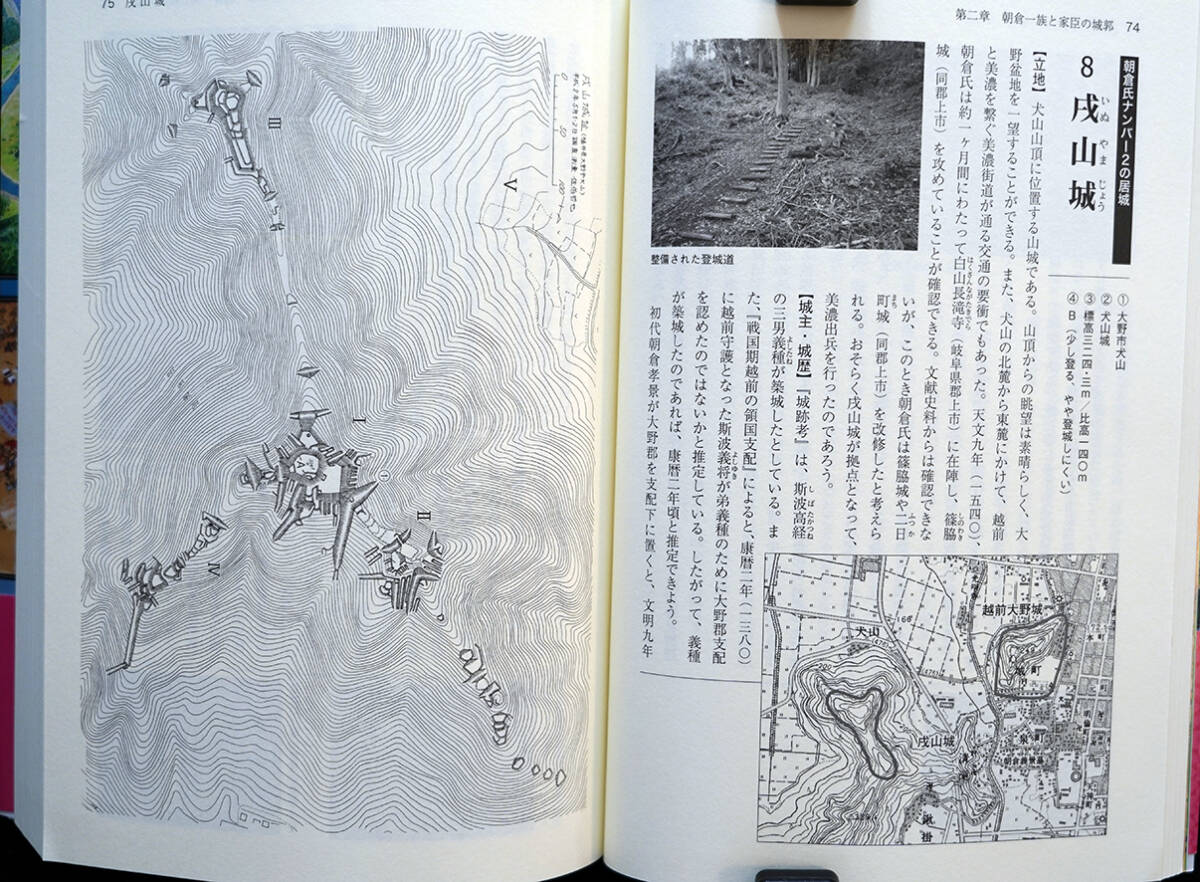 第二章　朝倉一族と家臣の城郭　74
朝倉氏ナンバー2の居城
8　戌山城
いぬやまじょう
①大野市犬山
②犬山城
③標高三二四・三m／比高一四〇m
④B（少し登る、やや登城しにくい）
【立地】　犬山山頂に位置する山城である。山頂からの眺望は素晴らしく、大
野盆地を一望することができる。また、犬山の北麓から東麓にかけて、越前
と美濃を繋ぐ美濃街道が通る交通の要衝でもあった。天文九年（一五四〇）、
朝倉氏は約一ヶ月間にわたって白山長滝寺（岐阜県郡上市）に在陣し、篠脇
はくさんながたきでら
しのわき
城（同郡上市）を攻めていることが確認できる。文献史料からは確認できな
いが、このとき朝倉氏は篠脇城や二日
ふつか
町城（同郡上市）を改修したと考えら
まち
れる。おそらく戌山城が拠点となって、
美濃出兵を行ったのであろう。
【城主・城歴】　『城跡考』は、斯波高経
しばたかつね
の三男義種が築城したとしている。ま
よしたね
た、『戦国期越前の領国支配』によると、康暦二年（一三八〇）
に越前守護となった斯波義将が弟義種のために大野郡支配
よしゆき
を認めたのではないかと推定している。したがって、義種
が築城したのであれば、康暦二年頃と推定できよう。
初代朝倉孝景が大野郡を支配下に置くと、文明九年
整備された登城道
越前大野城
犬山
戌山城
城町
泉町
166
200
324
75　戌山城
戌山城址
0
50
100
I
①
II
III
IV
V